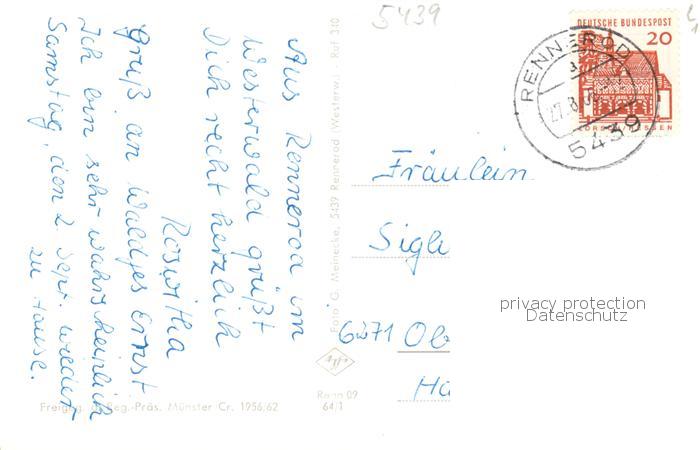 5439
DEUTSCHE BUNDESPOST
20
LORSCH/HESSEN
RENNEROD
a
5439
Aus Rennerod im
Westerwald grüßt
Dich recht herzlich
Roswitha
Gruß an Waldjes Ernst
Ich bin sehr wahrscheinlich
Samstag, den 2. Sept. wieder
zu Hause.
Foto G. Meinecke, 5439 Rennerod (Westerw.) Ruf 310
Fräulein
Sigli
6271 Ob
Ha
privacy protection
Datenschutz
Renn 09
64/1
Freigeg. d. Reg.-Präs. Münster Cr. 1956/62